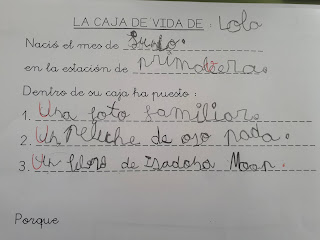 LA CAJA DE VIDA DE: Lola
Nació el mes de Junio.
en la estación de primavera.
Dentro de su caja ha puesto:
1. Una foto familiar.
2. Un peluche de oso panda.
3. Un libro de Isadora Moon.
Porque